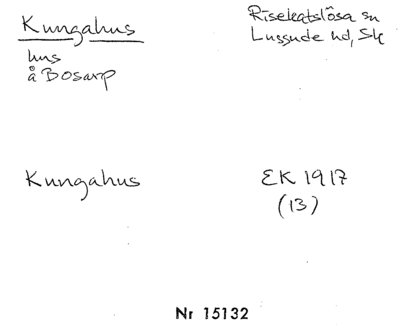 Kungahus
Risekatslösa sn
Luggude hd, Sk
hus
å Bosarp
Kungahus
EK 1917
(13)
Nr 15132